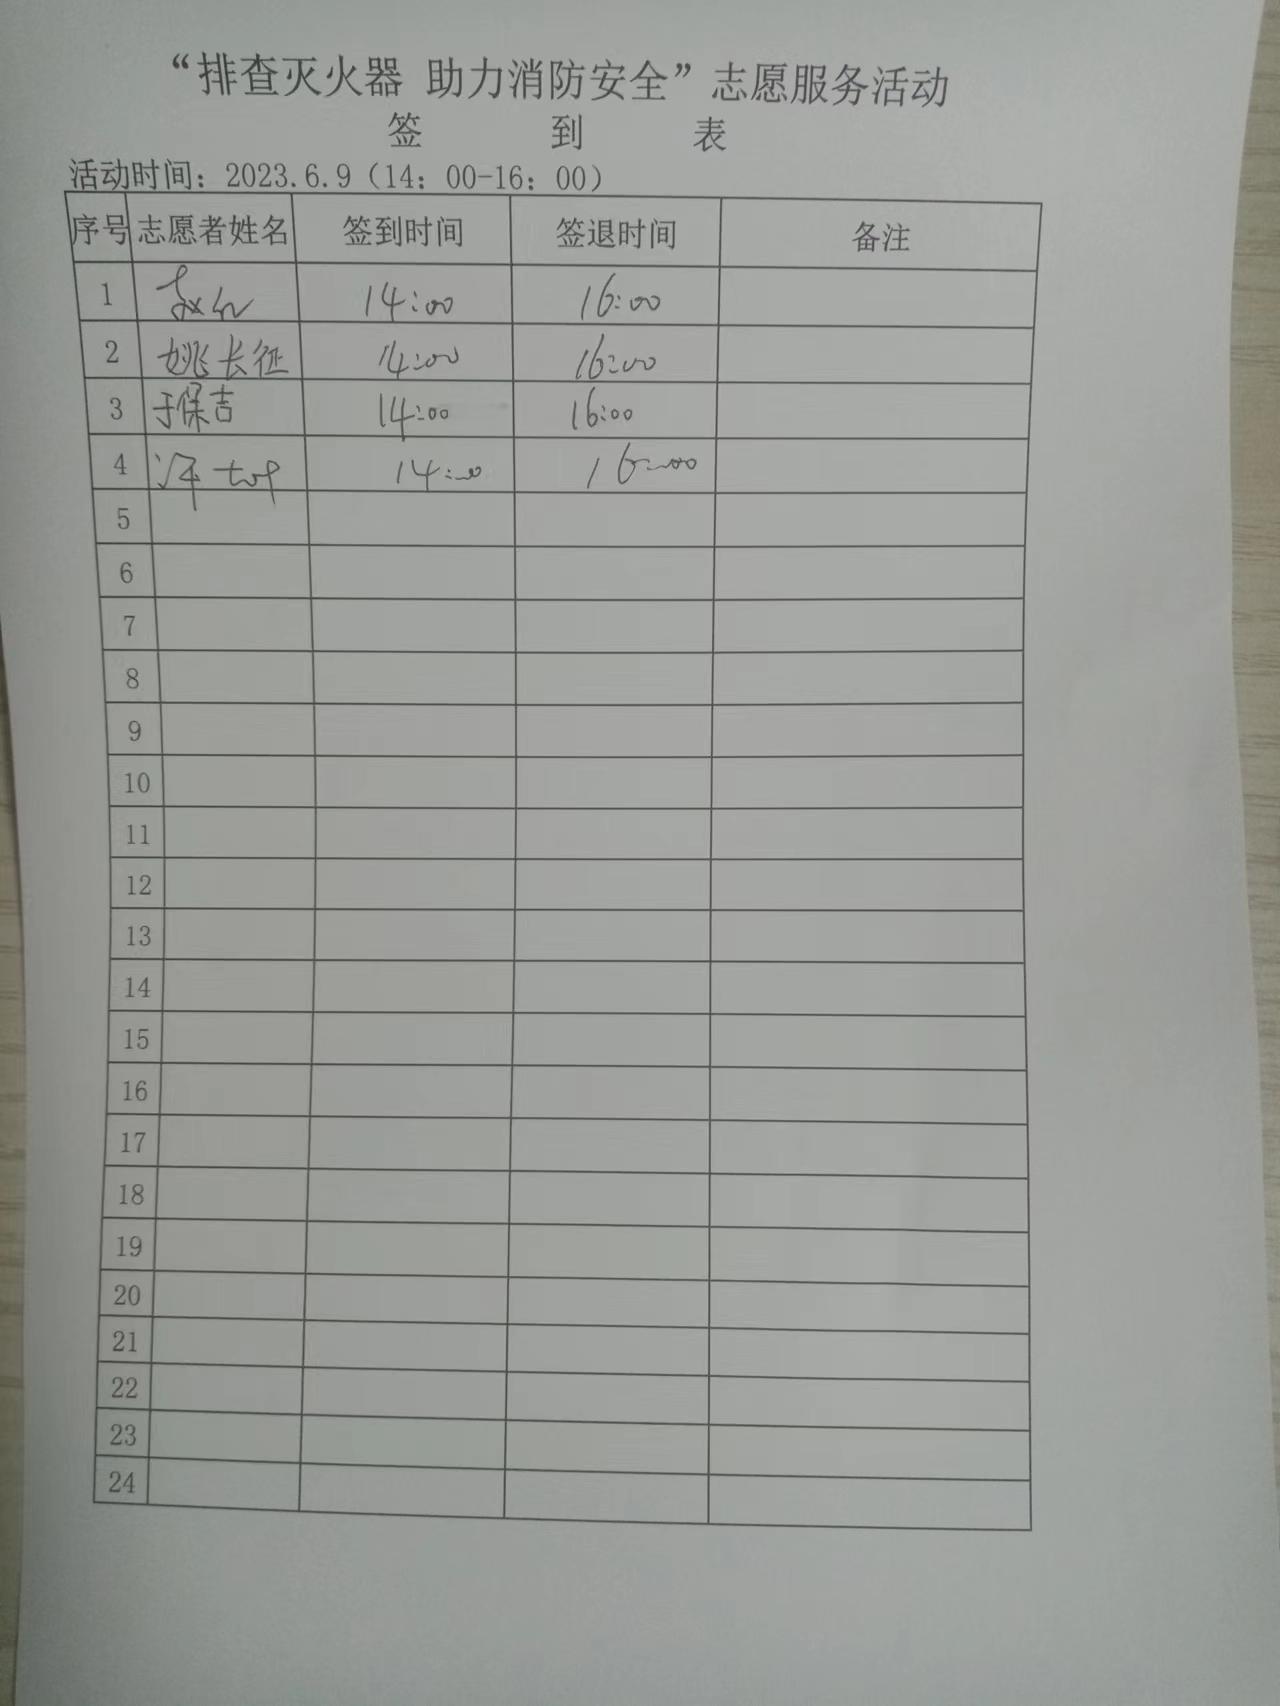 “排查灭火器 助力消防安全”志愿服务活动
签 到 表
活动时间：2023.6.9（14：00-16：00）
序号 志愿者姓名 签到时间 签退时间 备注
1 14:00 16:00
2 姚长征 14:00 16:00
3 于保吉 14:00 16:00
4 14:00 16:00
5
6
7
8
9
10
11
12
13
14
15
16
17
18
19
20
21
22
23
24